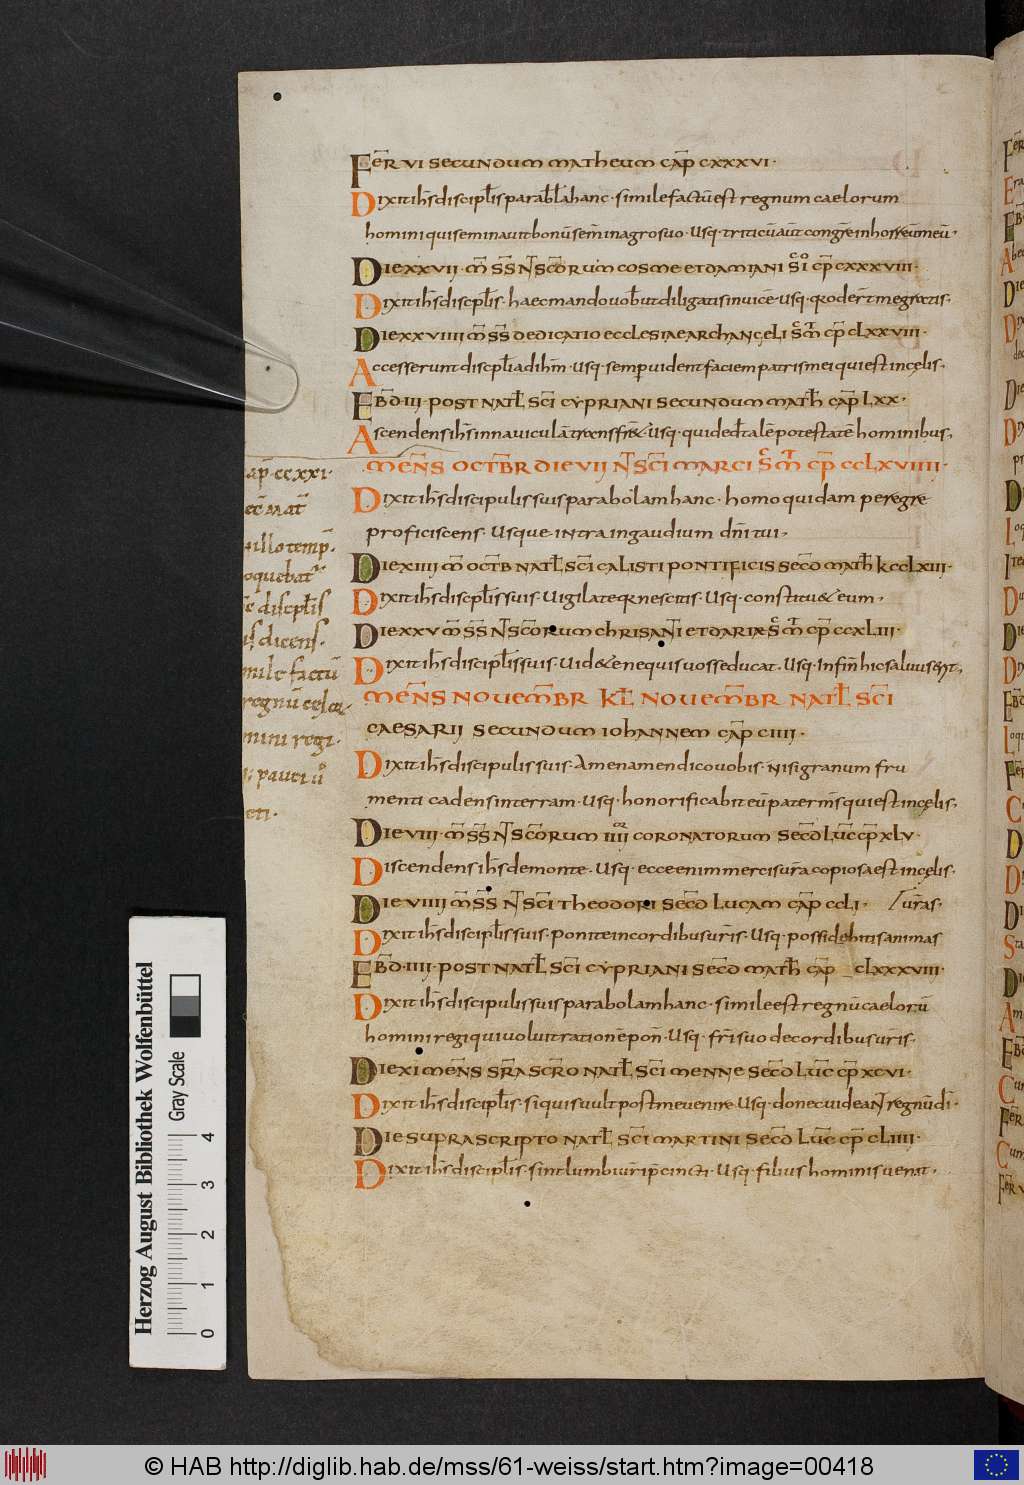 FER̄ VI SECUNDUM MATHEUM CAP̄ CXXXVI·
Dixit ihs̄ discipƚis parabƚa hanc· simile factū est regnum caelorum
homini qui seminauit bonū sem̄ in agro suo· Usq· triticū aūt congr̄e in horreū meū·
DIE XXVII· M̄ SS̄ NT̄ SC̄ORUM COSME ET DAMIANI S̄ IO CP̄ CXXXVIII·
Dixit ihs̄ discpƚis· haec mando uob̄ ut diligatis inuicē· usq·
DIE XXVIIII M̄ SS̄ DEDICATIO ECCLESIAE ARCHANGELI S̄ MT̄ CP̄ CLXXVIII·
Accesserunt discpƚi ad ihm̄· usq· semp̱ uident faciem patris mei qui est in cęlis·
EBD̄· III· POST NATƚ SC̄I CYPRIANI SECUNDUM MATH̄ CAP̄ LXX·
Ascendens ihs̄ in nauiculā transfr& Usq· qui ded̄ talē potestatē hominibus·
MEN̄S OCTB̄R DIE VII NT̄ SC̄I MARCI S̄ MT̄ CP̄ CCLXVIIII·
Dixit ihs̄ discipulis suis parabolam hanc· homo quidam peregre
proficiscens· Usque· intra in gaudium dn̄i tui·
DIE XIIII M̄ OCTB̄ NATƚ SC̄I CALISTI PONTIFICIS SECD̄ MATH̄ K CCLXIII·
Dixit ihs̄ discpƚis suis· Uigilate q nescitis· Usq· constitu& eum·
DIE XXV M̄ SS̄ NT̄ SC̄ORUM CHRISANTI ET DARIAE S̄ MT̄ CP̄ CCXLIII·
Dixit ihs̄ discipƚis suis· Uid&e ne quis uos seducat· Usq· In fin̄ hic saluus erit·
MEN̄S NOUEM̄BR KƚL NOUEM̄BR NATƚ SC̄I
CAESARII SECUNDUM IOHANNEM CAP̄ CIIII·
Dixit ihs̄ discipulis suis· Amen amen dico uobis· Nisi granum fru
menti cadens in terram· Usq· honorificabit eū pater m̄s qui est in cęlis·
DIE VIII· M̄ SS̄ NT̄ SC̄ORUM IIII OR CORONATORUM SECD̄ LUC̄ CP̄ XLV·
Discendens ihs̄ de monte· Usq· ecce enim merces ur̄a copiosa est in cęlis·
DIE VIIII M̄ SS̄ NT̄ SC̄I THEODORI SECD̄ LUCAM CAP̄ CCLI· / ur̄as·
Dixit ihs̄ discipƚis suis· Ponite in cordibus ur̄is· Usq· possidebitis animas
EBD̄· IIII· POST NATƚ SC̄I CYPRIANI SECD̄ MATH̄ CAP̄ CLXXXVIII·
Dixit ihs̄ discipulis suis parabolam hanc· simile est regnū caelorū
homini regi qui uoluit rationē pon̄· Usq· fr̄i suo de cordibus ur̄is·
DIE XI MEN̄S SR̄A SCR̄O NATƚ SC̄I MENNE SECD̄ LUC̄ CP̄ XCVI·
Dixit ihs̄ discipƚis· si quis uult post me uenire· Usq· donec uideant regnū dī·
DIE SUPRASCRIPTO NATƚ SC̄I MARTINI SECD̄ LUC̄ CP̄ CLIIII·
Dixit ihs̄ discipƚis· sint lumbi ur̄i p̄cincti· Usq· filius hominis uenit·
ap̄· ccxxi·
ec̄ mat̄
illo temp̄·
oquebat
discpƚis
is dicens·
mile factū
regnū cęloꝝ·
mini regi·
pauci ū
cti·
Herzog August Bibliothek Wolfenbüttel
Gray Scale
0 1 2 3 4
© HAB http://diglib.hab.de/mss/61-weiss/start.htm?image=00418